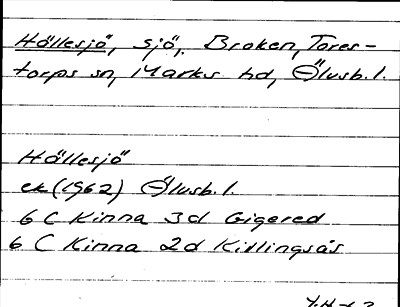 Hällesjö, sjö, Broken, Tores-
torps sn, Marks hd, Älvsb. l.
Hällesjö
ek (1962) Älvsb. l
6 C Kinna 3d Gigered
6 C Kinna 2d Killingsås